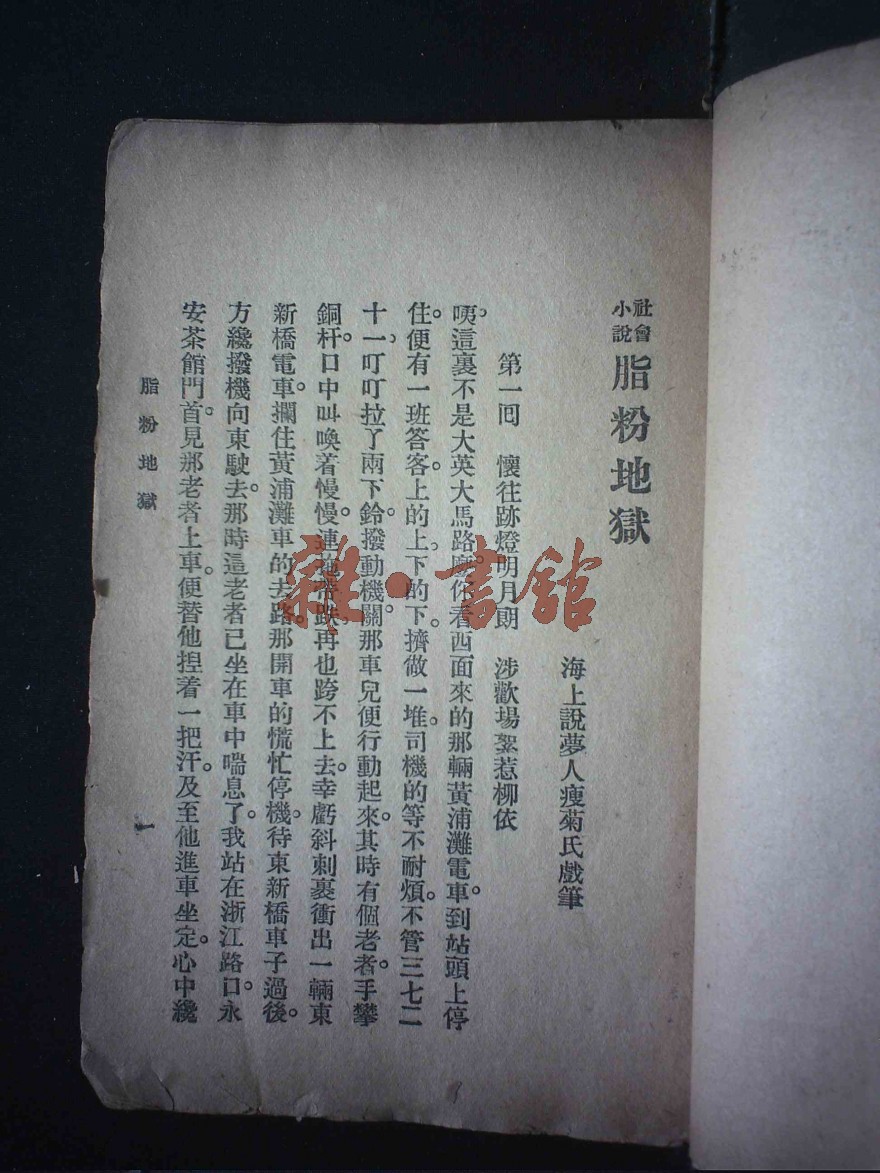 社會小說 脂粉地獄
海上說夢人瘦菊氏戲筆
第一回 懷往跡燈明月朗 涉歡場絮惹柳依
咦。這裏不是大英大馬路麽。你看西面來的那輛黃浦灘電車。到站頭上停
住。便有一班答客。上的上。下的下。擠做一堆。司機的等不耐煩。不管三七二
十一。叮叮拉了兩下鈴。撥動機關。那車兒便行動起來。其時有個老者。手攀
銅杆。口中叫喚着慢慢。連拖帶跌。再也跨不上去。幸虧斜刺裏衝出一輛東
新橋電車。攔住黃浦灘車的去路。那開車的慌忙停機。待東新橋車子過後。
方纔撥機向東駛去。那時這老者已坐在車中喘息了。我站在浙江路口。永
安茶館門首。見那老者上車。便替他揑着一把汗。及至他進車坐定。心中纔
脂粉地獄
一
雜·書館